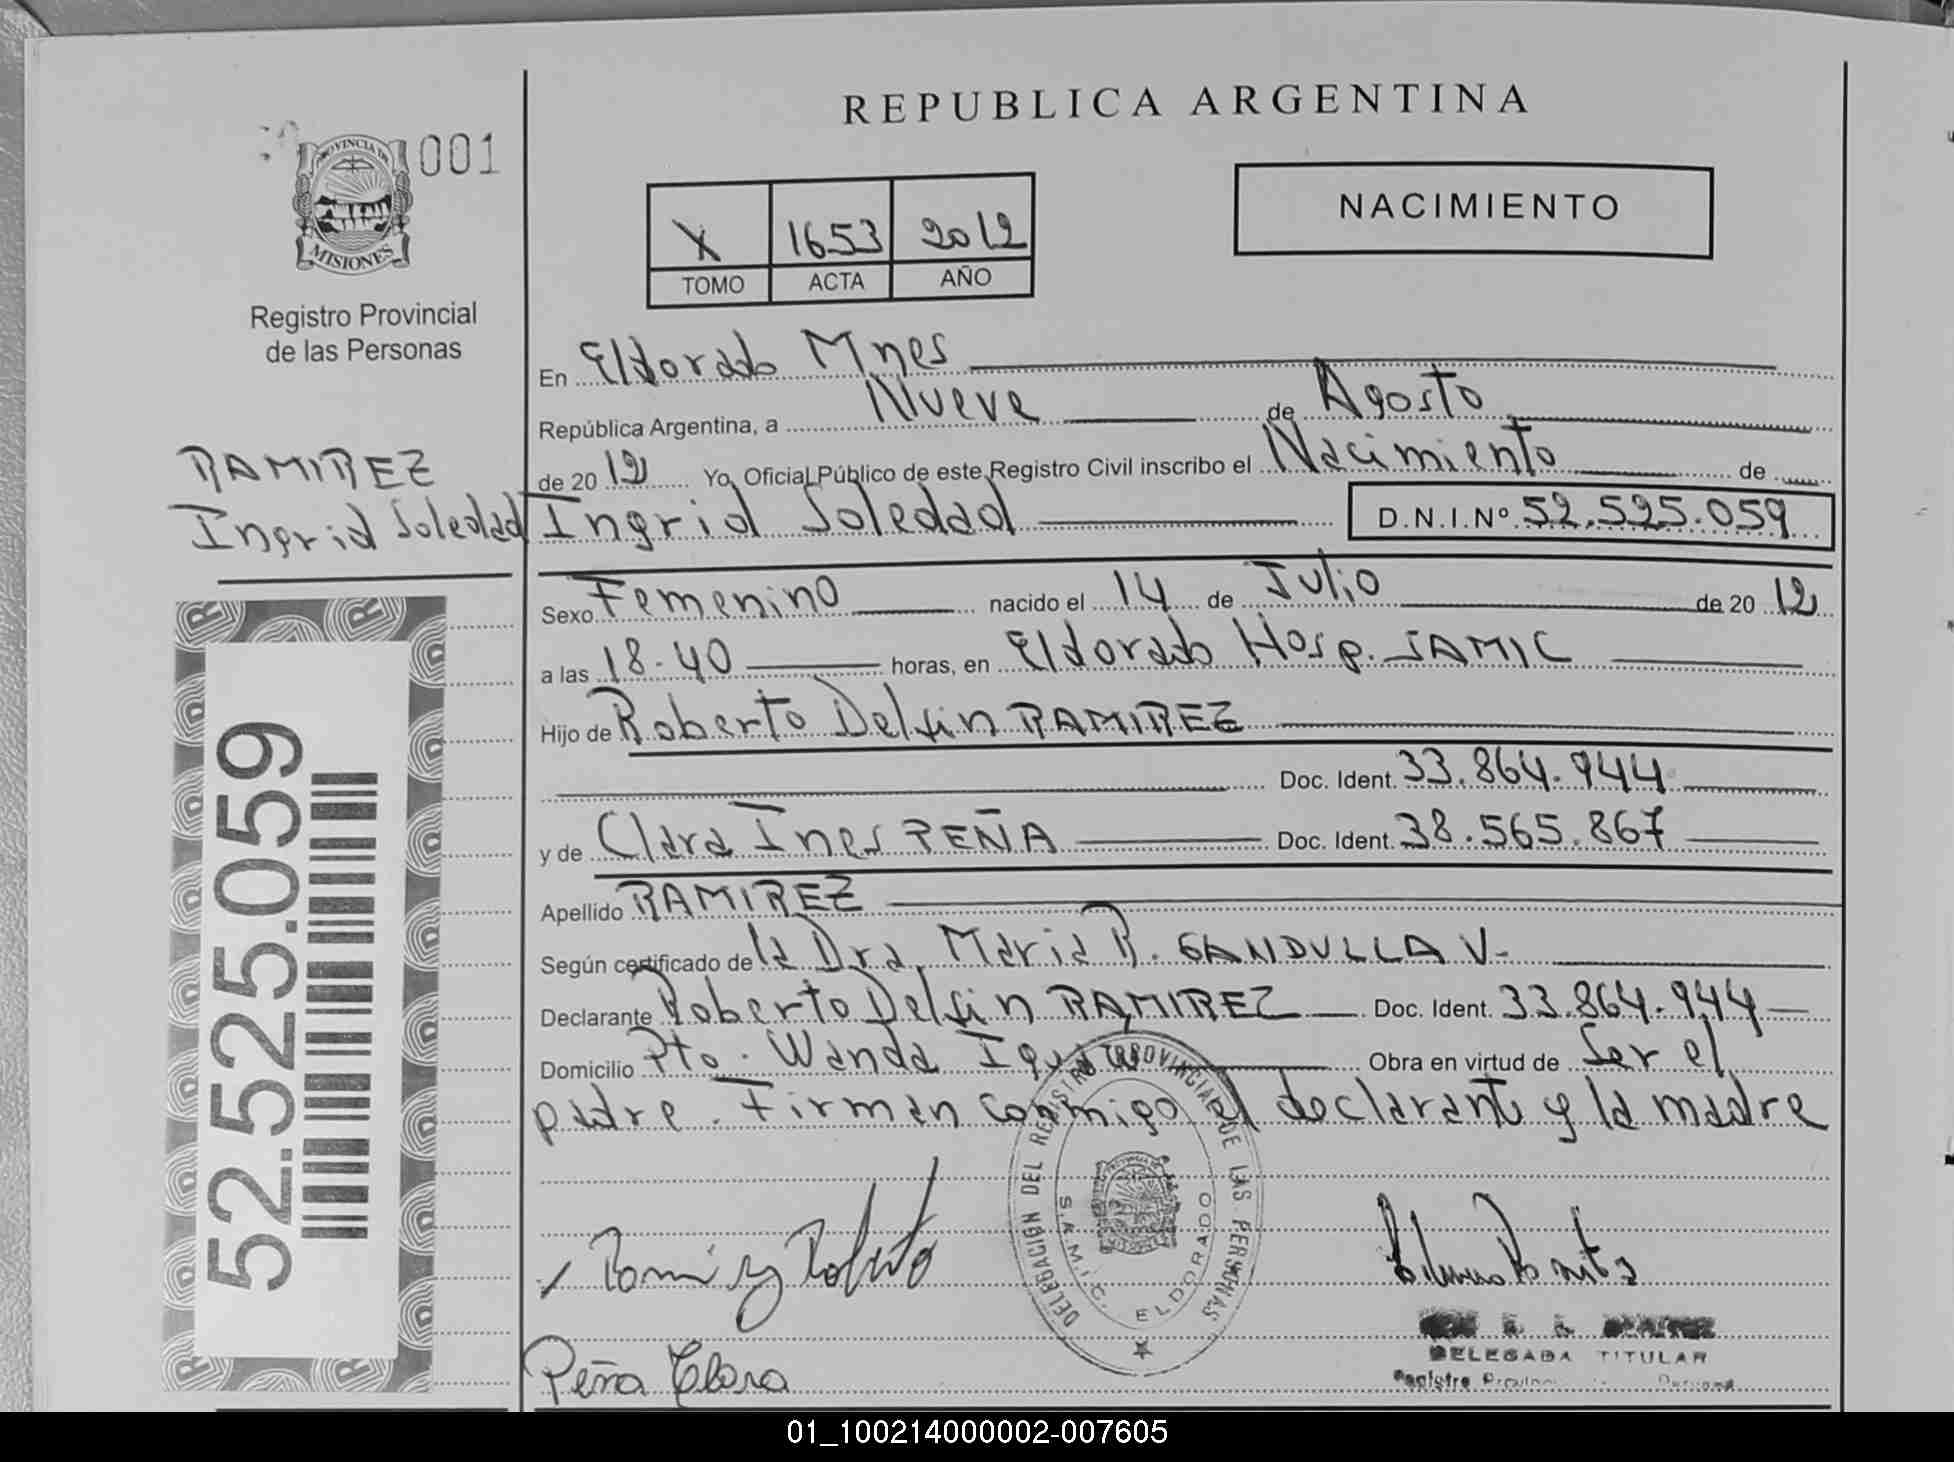 REPUBLICA ARGENTINA
PROVINCIA DE
MISIONES
001
Registro Provincial
de las Personas
X 1653 2012
TOMO ACTA AÑO
NACIMIENTO
En Eldorado Mnes
República Argentina, a Nueve de Agosto
de 2012 Yo, Oficial Público de este Registro Civil inscribo el Nacimiento de
RAMIREZ
Ingrid Soledad
Ingrid Soledad D.N.I.Nº 52.525.059
Sexo Femenino nacido el 14 de Julio de 2012
a las 18.40 horas, en Eldorado Hosp. SAMIC
Hijo de Roberto Delfin RAMIREZ
Doc. Ident. 33.864.944
y de Clara Ines PEÑA Doc. Ident. 38.565.867
Apellido RAMIREZ
Según certificado de la Dra. Maria R. GANDULLA V.
Declarante Roberto Delfin RAMIREZ Doc. Ident. 33.864.944
Domicilio Pto. Wanda Obra en virtud de Ser el
padre. Firman conmigo el declarante y la madre
52.525.059
DELEGACIÓN DEL REGISTRO PROVINCIAL DE LAS PERSONAS
S.A.M.I.C. ELDORADO
Ramirez Roberto
Peña Clara
DELEGADA TITULAR
Registro
01_100214000002-007605